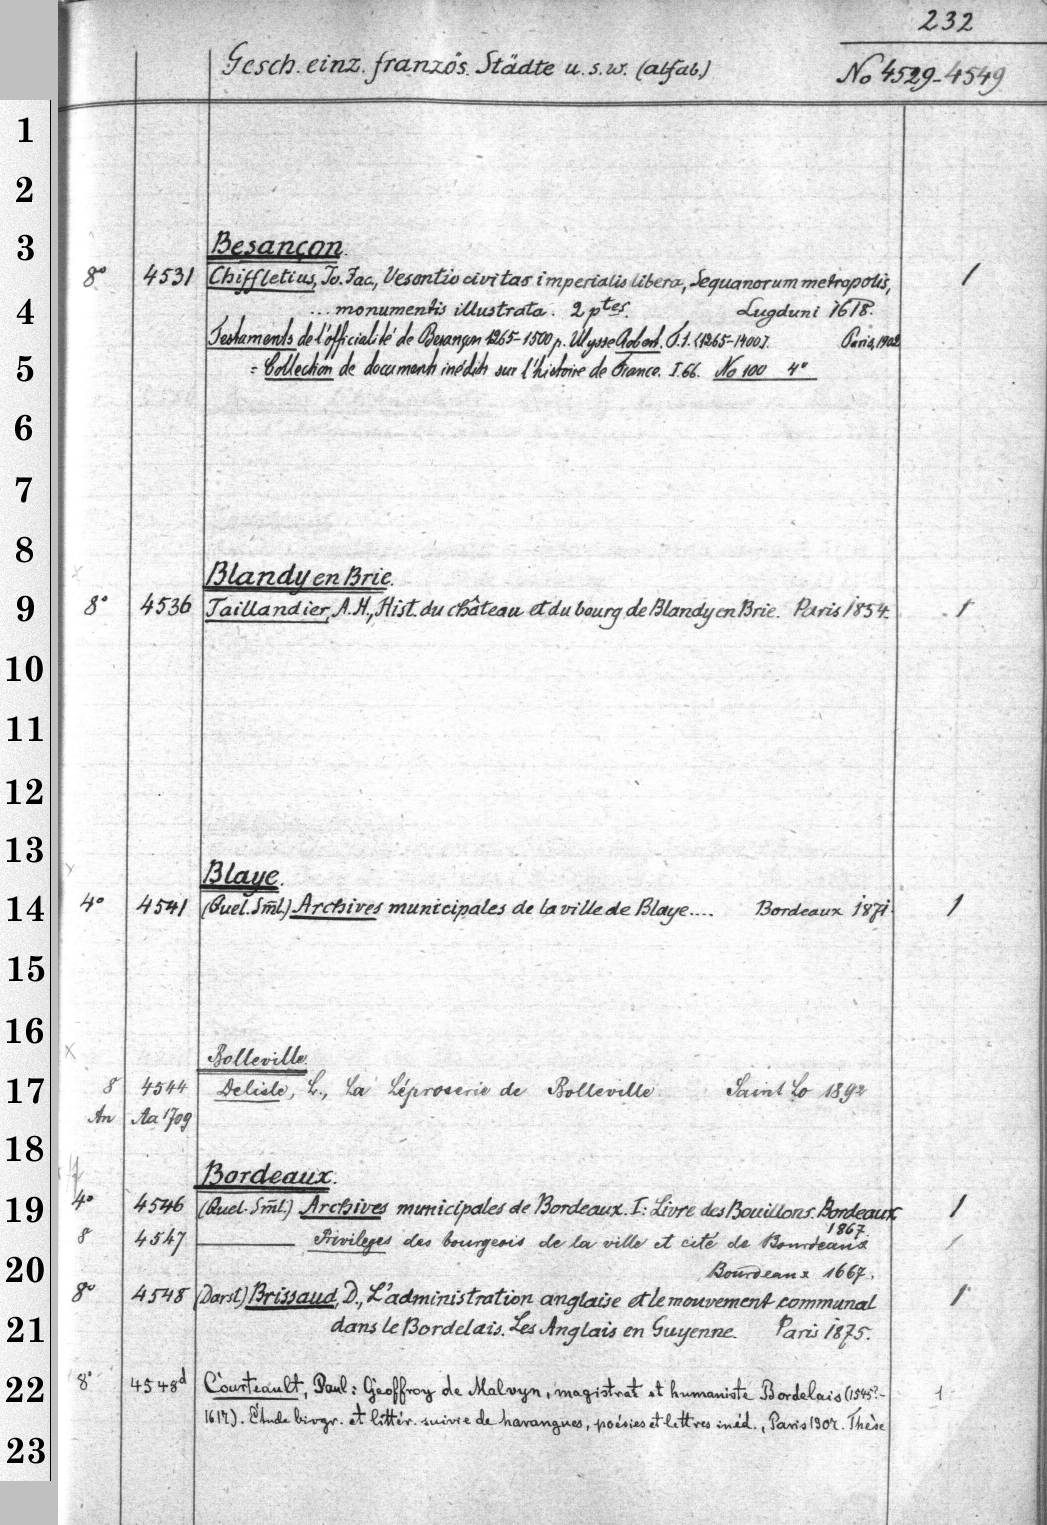 232
Gesch. einz. französ. Städte u.s.w. (alfab.)
No 4529-4549
1
2
3
Besançon.
8° 4531 Chiffletius, Jo. Jac., Vesontio civitas imperialis libera, Sequanorum metropolis, 1
4
... monumentis illustrata. 2 ptes. Lugduni 1618.
Testaments de l'officialité de Besançon 1265-1500 p. Ulysse Robert. T.1. (1265-1400). Paris, 1902
5
= Collection de documents inédits sur l'histoire de France. I.66. No 100 4°
6
7
8
Blandy en Brie.
9
8° 4536 Taillandier, A.H., Hist. du château et du bourg de Blandy en Brie. Paris 1854. 1
10
11
12
13
Blaye.
14
4° 4541 (Quel. Sml.) Archives municipales de la ville de Blaye.... Bordeaux 1871. 1
15
16
Bolleville.
17
8 4544 Delisle, L., La Léproserie de Bolleville Saint Lo 1892
An Aa 1709
18
Bordeaux.
19
4° 4546 (Quel. Sml.) Archives municipales de Bordeaux. I: Livre des Bouillons. Bordeaux 1
1867.
8 4547 Privileges des bourgeois de la ville et cité de Bourdeaux 1
20
Bourdeaux 1667.
8° 4548 (Darst) Brissaud, D., L'administration anglaise et le mouvement communal 1
21
dans le Bordelais. Les Anglais en Guyenne. Paris 1875.
22
8° 4548d Courteault, Paul: Geoffroy de Malvyn, magistrat et humaniste Bordelais (1545?- 1
1617). Étude biogr. et littér. suivie de harangues, poésies et lettres inéd., Paris 1907. Thèse
23